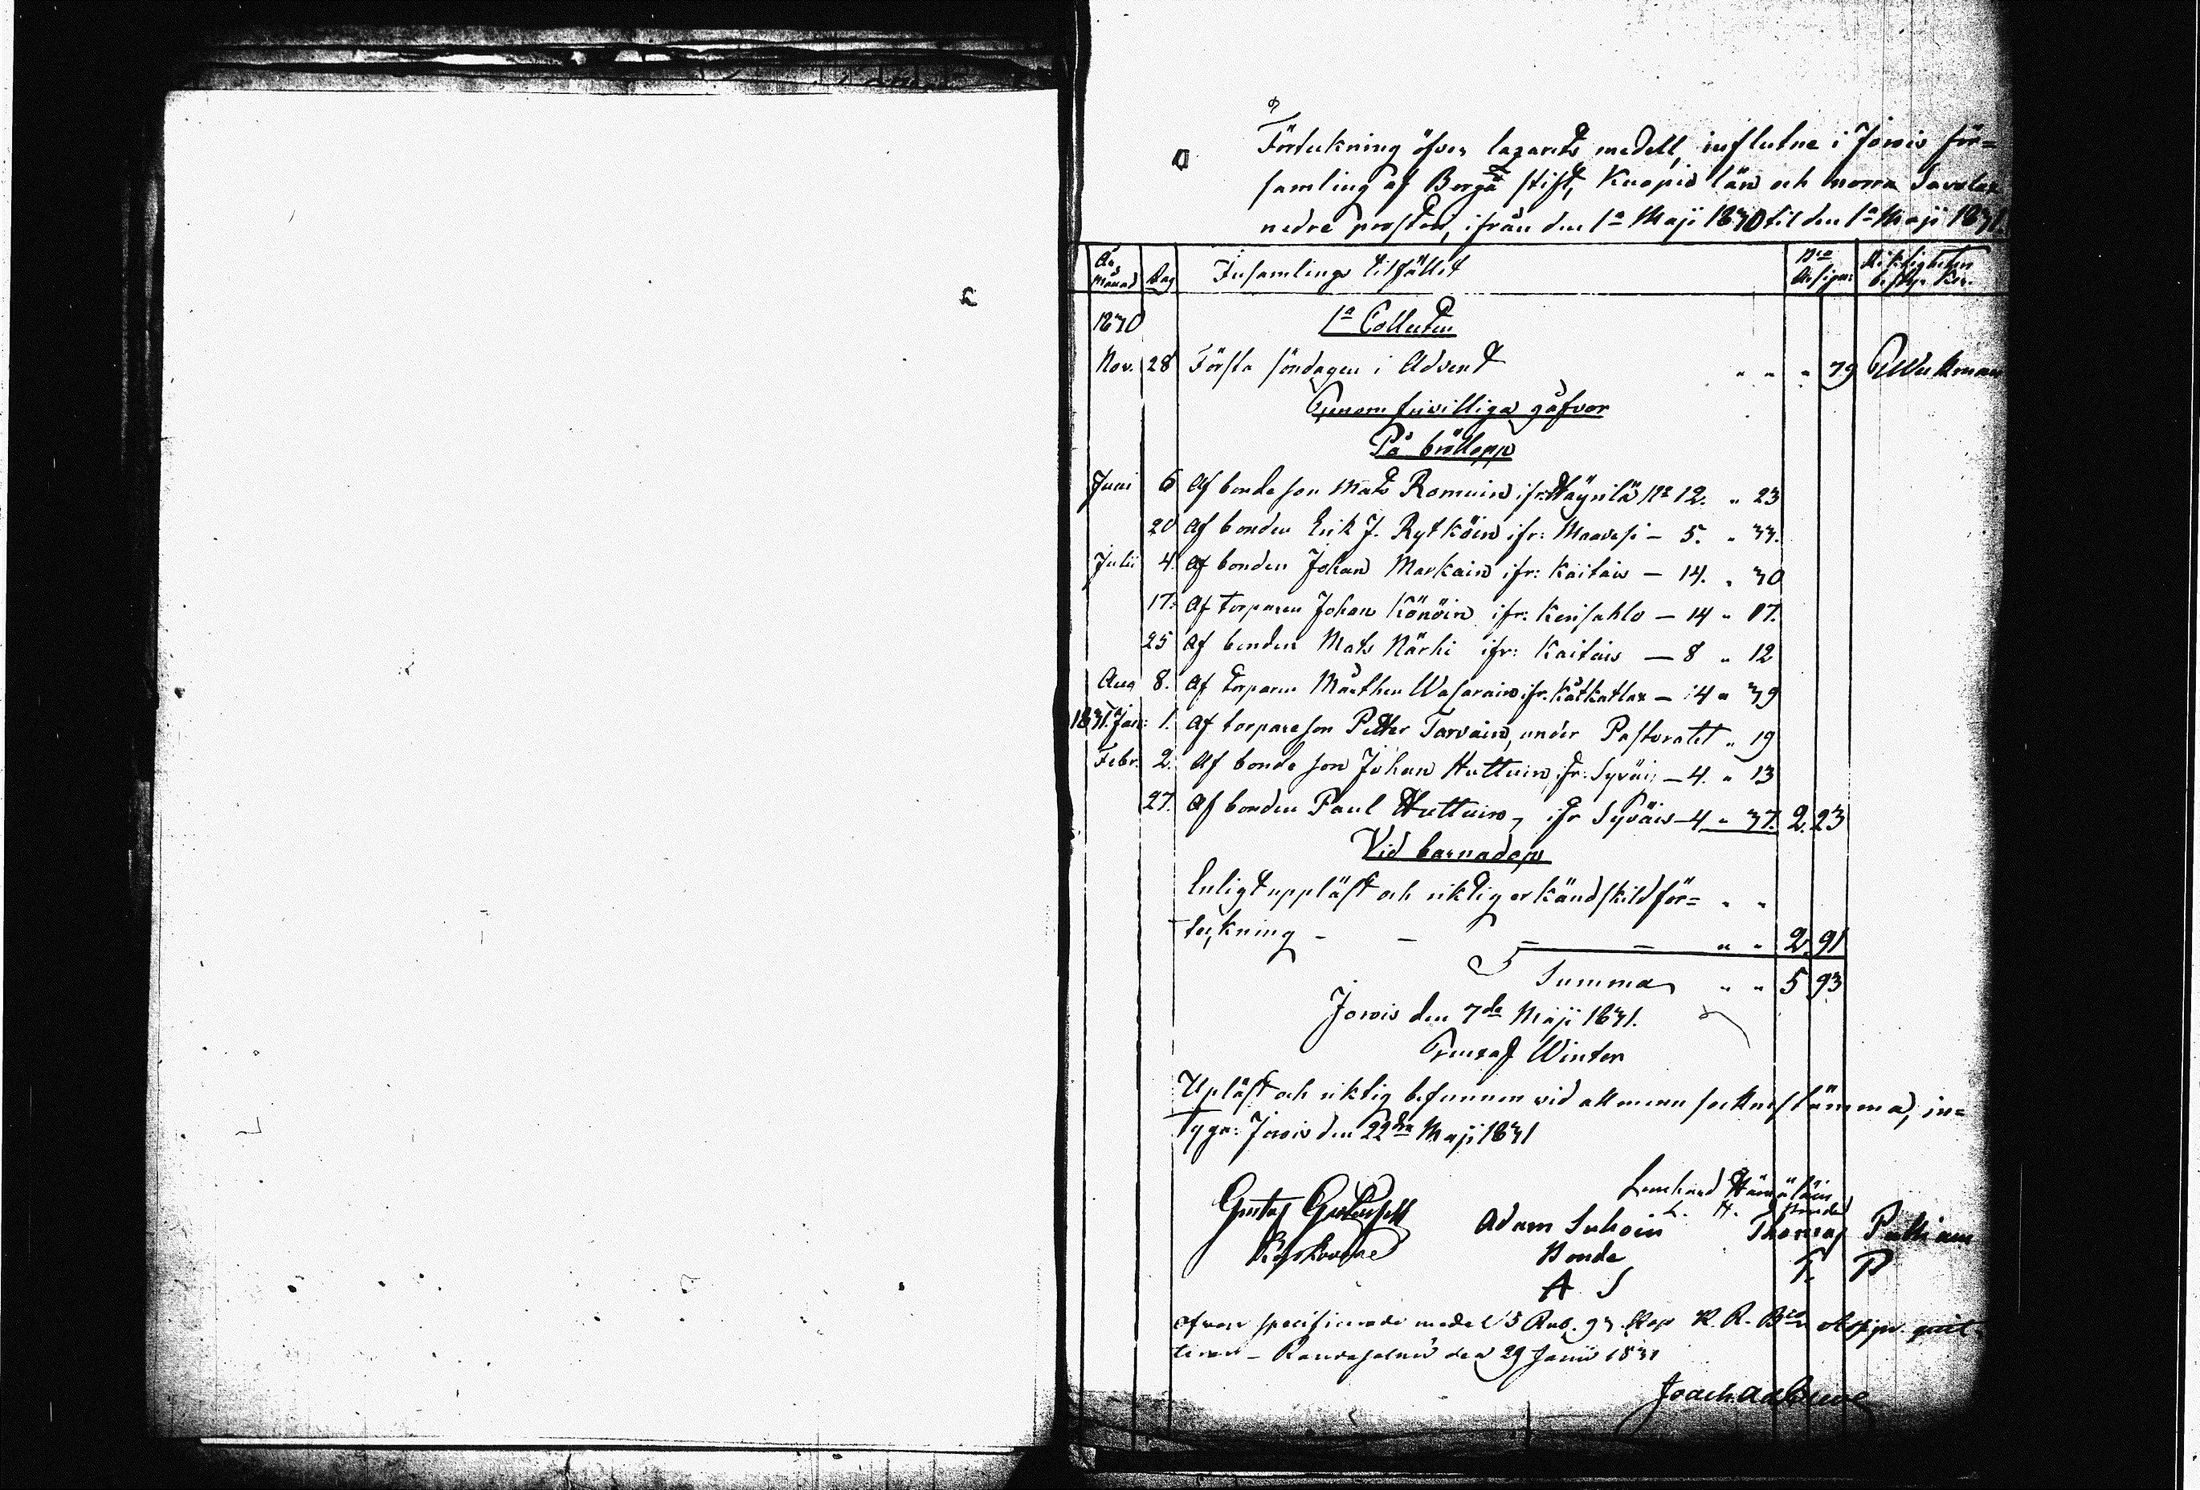 Förteckning öfver lazaretts medell, influtne i Jorois för=
samling af Borgå stift, Kuopio län och norra Savolax
nedre prosteri, ifrån den 1a Maji 1830 til den 1a Maji 1831.
År, Månad Dag Insamlings tilfället Bco Assign: Riktigheten bestyrkes.
1830 1a Collecten
Nov. 28 Första söndagen i Advent " " " 79
Genom frivilliga gåfvor
På bröllopp
Juni 6 Af bondeson Mats Romain ifr: Häyrilä No 12. " 23
20 Af bonden Erik J. Rytköin ifr: Maavesi – 5. " 33.
Julii 4. Af bonden Johan Markain ifr: Kaitais – 14. " 30
17. Af torparen Johan Könöin ifr: Kerisahlo – 14 " 17.
25 Af bonden Mats Närhi ifr: Kaitais – 8 " 12
Aug 8. Af torparen Mårthen Wasarain ifr: Kåtkatlax – 4 " 39
1831. Jan: 1. Af torpareson Petter Tarvain, under Pastoratet " 19
Febr. 2. Af bondeson Johan Huttuin ifr: Syväis – 4. " 13
27. Af bonden Paul Huttuin, ifr Syväis – 4 " 37. 2. 23
Vid barnadop
Enligt uppläst och riktig erkänd skild för= " "
teckning – – – – " " 2. 91
Summa " " 5 93
Jorois den 7de Maji 1831.
Winter
Upläst och riktig befunnen vid allmenn socknestämma, in=
tyga: Jorois den 22dra Maji 1831
Lenhard Hämäläin
Gustaf L. H.
Adam Suhoin Thomas
Bonde T. P
A S
ofvan specificerade medel 5 Rub. 93 Kop R. R. Bco Assign. quit-
teras – den 29 Junii 1831
Joach.